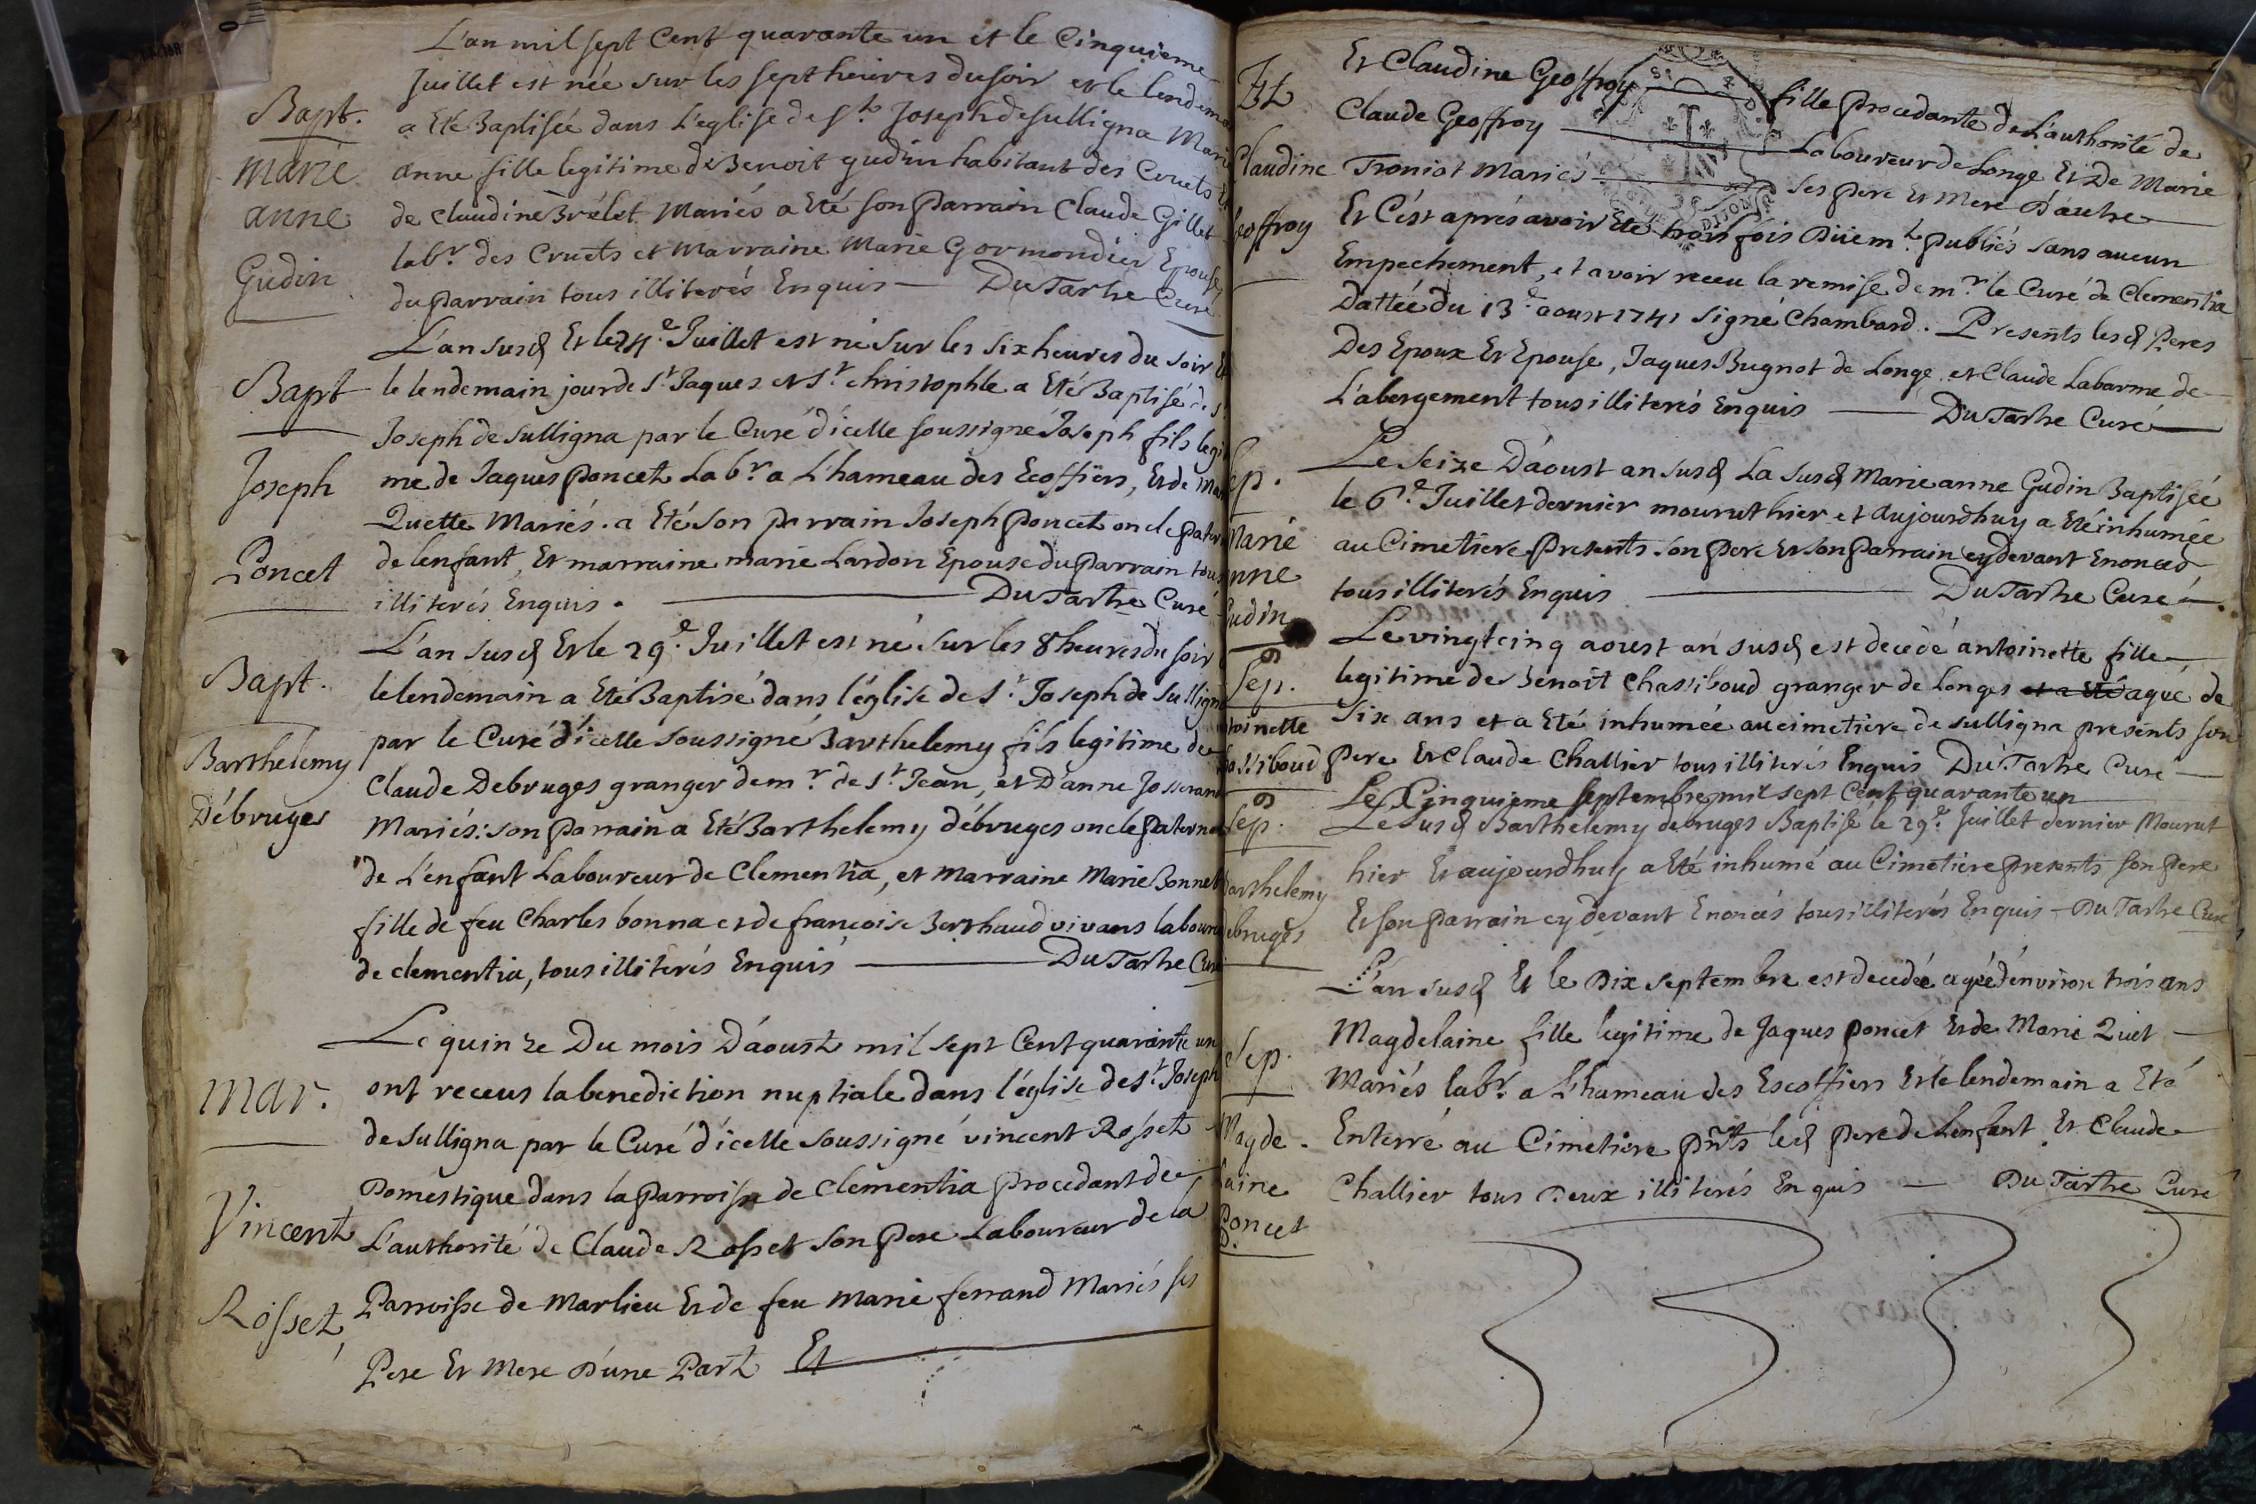 L'an mil sept Cent quarante un et le Cinquieme
Bapt. Juillet est née sur les sept heures du soir et le lendem
a Eté Baptisée dans L'eglise de St. Joseph de sulligna Mari
Marie anne fille legitime de Benoit gudin habitant des Cruets
anne de Claudine Brélet Mariés a Eté son parrain Claude Gillet
Gudin labr. des Cruets et Marraine Marie Gormondier Epouse
du parrain tous illiterés Enquis — DuTartre Curé
L'an susd Et le 24e. Juillet est né sur les six heures du soir
Bapt le lendemain jour de St. Jaques et St. christophle a Eté Baptisé
Joseph de sulligna par le Curé d'icelle soussigné Joseph fils legi
Joseph me de Jaques poncet Labr. a L'hameau des Ecoffiers, Et de Ma
Quette Mariés. a Eté son parrain Joseph poncet oncle pater
Poncet de lenfant, Et marraine marie Lardon Epouse du parrain tous
illiterés Enquis. — DuTartre Curé
L'an susd Et le 29e. Juillet est né sur les 8 heures du soir
Bapt. le lendemain a Eté Baptisé dans l'église de St. Joseph de Sullign
par le Curé d'icelle soussigné Barthelemy fils legitime de
Barthelemy Claude Debruges granger de mr. de St. Jean, et D'anne Josseran
Débruges Mariés: son parrain a Eté Barthelemy débruges oncle patern
de L'enfant Laboureur de Clementia, et Marraine Marie Bonnet
fille de feu Charles bonna et de francoise Berthaud vivans labour
de clementia, tous illiterés Enquis — DuTartre Curé
Le quinze Du mois D'aoust mil sept Cent quarante un
Mar. ont receus la benediction nuptiale dans l'église de St. Joseph
de Sulligna par le Curé d'icelle soussigné vincent Rosset
Domestique dans la parroisse de Clementia procedant de
Vincent L'authorité de Claude Rosset son pere Laboureur de la
Rosset, Parroisse de Marlieu Et de feu Marie ferrand Mariés ses
Pere Et Mere D'une Part Et
Et Et Claudine Geoffroy fille procedante de L'authorité de
Claude Geoffroy — Laboureur de Longe Et De Marie
Claudine Troniot Mariés — ses pere Et Mere D'autre
Geoffroy Et C'ést aprés avoir Eté trois fois Düemt. publiés sans aucun
Empechement, et avoir receu la remise de mr. le Curé de Clementia
Dattée du 13e. aoust 1741 signé Chambard. Presents lesd Peres
Des Epoux Et Epouse, Jaques Bugnot de Longe et Claude Labarme de
L'abergement tous illiterés Enquis — DuTartre Curé
Sep. Le Seize D'aoust an susd La susd Marie anne Gudin Baptisée
le 6e. Juillet dernier mourut hier et aujourdhuy a Eté inhumée
Marie au Cimetiere presents son pere Et son parrain cy devant Enoncés
anne tous illiterés Enquis — DuTartre Curé
Gudin Le vingt cinq aoust an susd est decedé antoinette fille
Sep. legitime de Benoit chassiboud granger de Longes et a Eté agué de
antoinette Six ans et a Eté inhumée au cimetiere de sulligna presents son
chassiboud pere Et Claude Challier tous illiterés Enquis DuTartre Curé
Le Cinquieme septembre mil sept Cent quarante un
Sep. Le susd Barthelemy debruges Baptisé le 29e. Juillet dernier Mourut
hier Et aujourdhuy a Eté inhumé au Cimetiere presents son pere
Barthelemy
debruges Et son parrain cy devant Enoncés tous illiterés Enquis — DuTartre Curé
L'an susd Et le Dix septembre est decedée agée d'environ trois ans
Magdelaine fille legitime de Jaques poncet Et de Marie Quiet
Sep. Mariés labr. a L'hameau des Escoffiers Et le lendemain a Eté
Magde. Enterré au Cimetiere pnts led pere de Lenfant Et Claude
laine Challier tous Deux illiterés Enquis — DuTartre Curé
Poncet